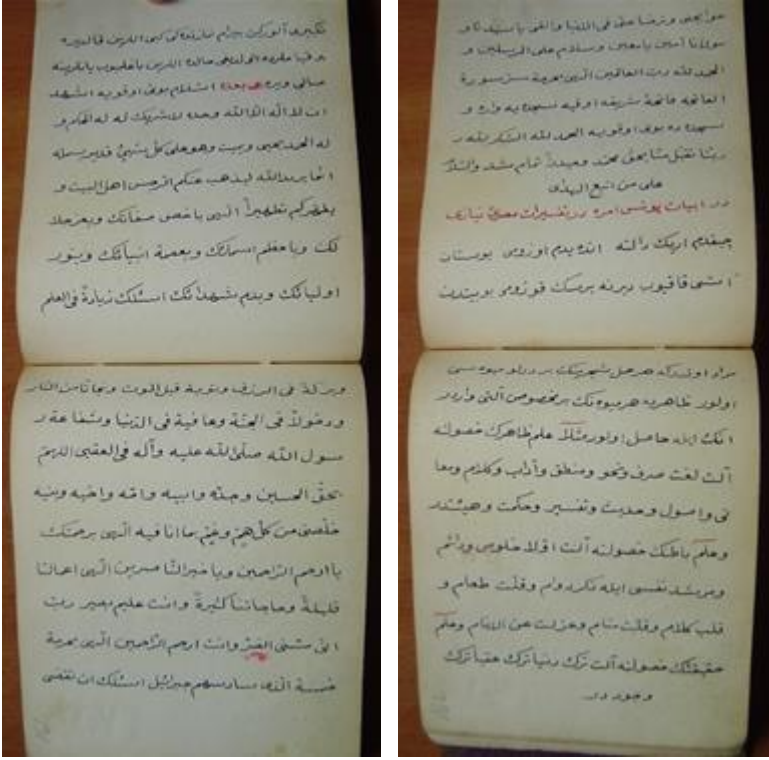 تكبيرى آلوركن
ان لا اله الا الله وحده لا شريك له له الملك و
له الحمد يحيى ويميت وهو على كل شيئ قدير بسمله
انما يريد الله ليذهب عنكم الرجس اهل البيت و
يطهركم تطهيراً الهى باخص صفاتك وبعز جلا
لك وباعظم اسمائك وبعصمة انبيائك وبنور
اوليائك وبدم شهدائك اسئلك زيادةً فى العلم
وبركةً فى الرزق وتوبة قبل الموت ونجاتا من النار
ودخولاً فى الجنّة وعافية فى الدّنيا وشفاعة ر
سول الله صلّى الله عليه وآله فى العقبى اللهمّ
بحقّ الحسين وجدّه وابيه وامّه واخيه وبنيه
خلّصنى من كلّ همّ وغمّ بما انا فيه الهى برحمتك
يا ارحم الرّاحمين ويا خير النّاصرين الهى اعمالنا
قليلةً وحاجاتنا كثيرةً وانت عليم بصير ربّ
انّى مسّنى الضرّ وانت ارحم الرّاحمين الهى بحرمة
خمسة الّذى سادسهم جبرائيل اسئلك ان تقضى
حوايجى وترضا عنى فى الدنيا والعقبى يا سيدنا و
مولانا آمين يا معين وسلام على المرسلين و
الحمد لله رب العالمين الهى بحرمة سرّ سورة
الفاتحه فاتحۀ شريفه اوقيه سجده يه واره و
سجده ده بونى اوقويه الحمد لله الشكر لله ر
ربّنا تقبّل منّا بحقّ محمّد وحيدر تمام شد والسّلام
على من اتبع الهدى
در ابيات يونس امره در تفسيرات مصرئ نيازى
چيقدم اريك دالنه انده يدم اوزومى بوستان
اسّى قاقيوب ديرنه يرسك قوزومى بو بيتدن
مراد اولدركه هر عمل شجرينك بر درلو ميوه سى
اولور ظاهرده هر ميوه نك بر مخصوص آلتى واردر
انك ايله حاصل اولور مثلاً علم ظاهرك حصولنه
آلت لغت صرف ونحو ومنطق وآداب وكلام ومعا
نى واصول وحديث وتفسير وحكمت وهيئتدر
وعلم باطنك حصولنه آلت اوّلا خلوص ودائم
ومرشد نفسى ايله ذكر دوام وقلّت طعام و
قلت كلام وقلّت منام وعزلت عن الانام وعلم
حقيقتك حصولنه آلت ترك دنيا ترك عقبا ترك
وجود در